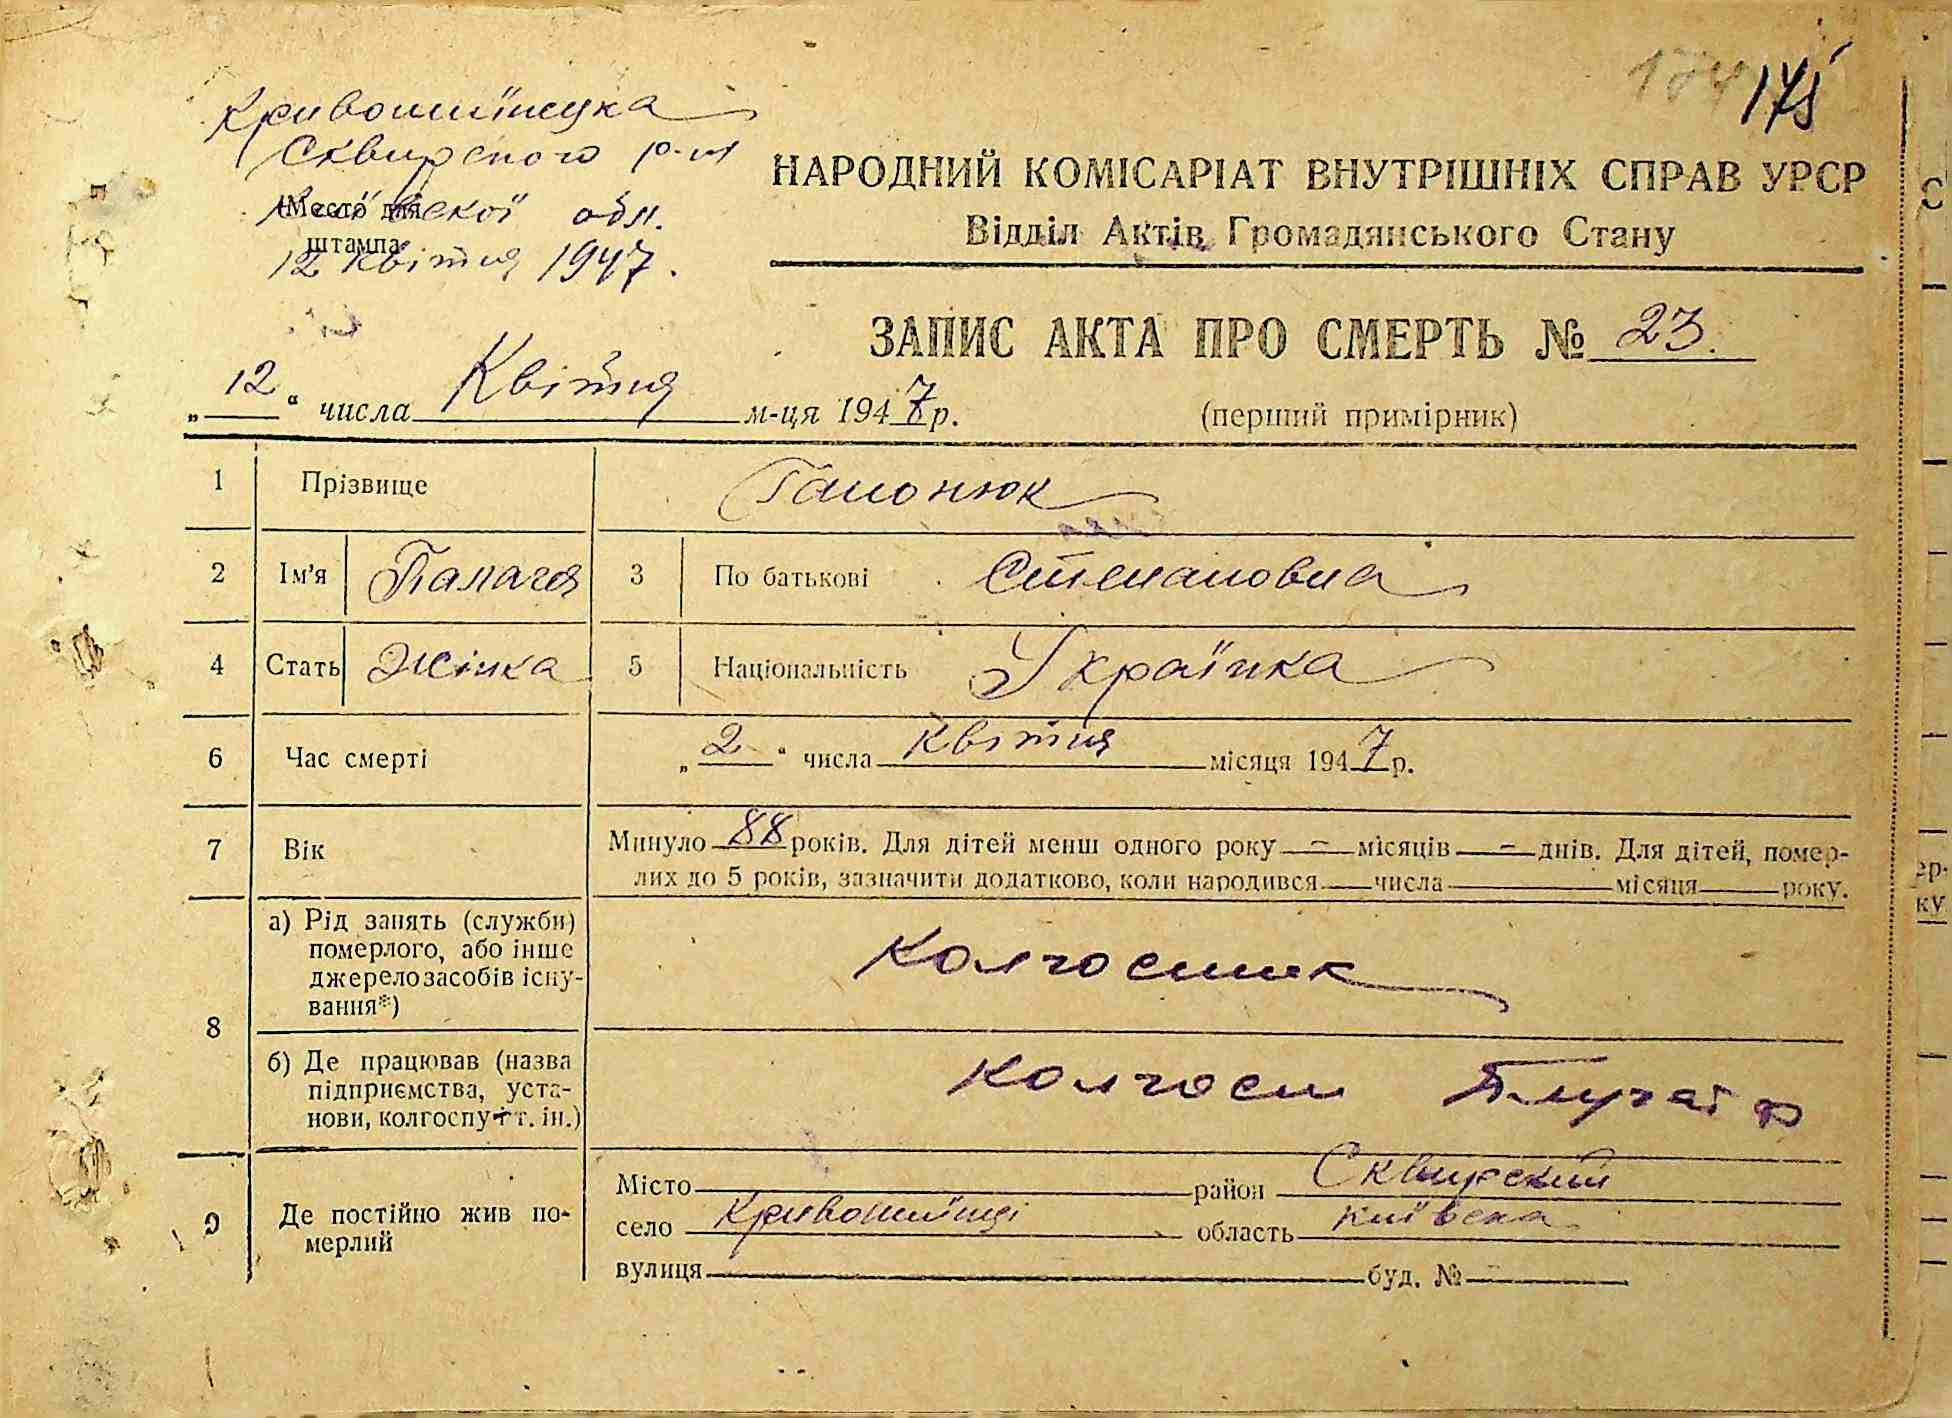 174 175
Кривошиїнська
Сквирського р-н
(Место для
Київської обл.
штампа
12 квітня 1947.
НАРОДНИЙ КОМІСАРІАТ ВНУТРІШНІХ СПРАВ УРСР
Відділ Актів Громадянського Стану
ЗАПИС АКТА ПРО СМЕРТЬ № 23.
„12“ числа Квітня м-ця 1947 р.
(перший примірник)
1 Прізвище Гапонюк
2 Ім'я Палагея 3 По батькові Степановна
4 Стать Жінка 5 Національність Українка
6 Час смерті „2“ числа квітня місяця 1947 р.
7 Вік Минуло 88 років. Для дітей менш одного року – місяців – днів. Для дітей, помер-
лих до 5 років, зазначити додатково, коли народився числа місяця року.
8 а) Рід занять (служби)
померлого, або інше
джерело засобів існу-
вання*)
Колгоспник
б) Де працював (назва
підприємства, уста-
нови, колгоспу й т. ін.)
колгосп
9 Де постійно жив по-
мерлий
Місто район Сквирский
село Кривошиїнці область київска
вулиця буд. №
С
ер-
ку